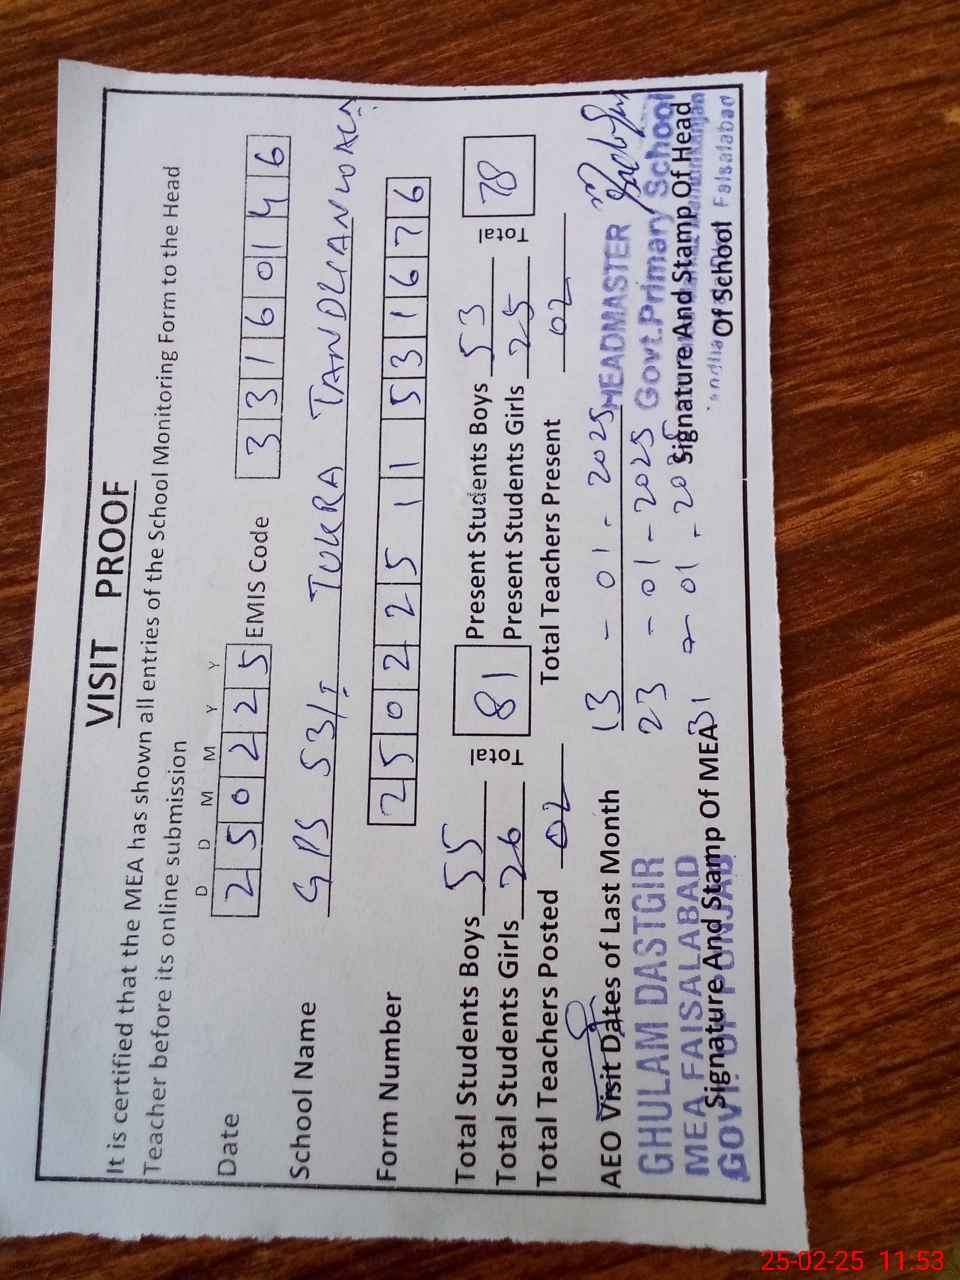 VISIT PROOF
It is certified that the MEA has shown all entries of the School Monitoring Form to the Head
Teacher before its online submission
D D M M Y Y
Date 250225 EMIS Code 33160146
School Name GPS 531 TUKRA TANDLIANWALA
Form Number 25022511531676
Total Students Boys 55 Total 81 Present Students Boys 53 Total 78
Total Students Girls 26 Present Students Girls 25
Total Teachers Posted 02 Total Teachers Present 02
AEO Visit Dates of Last Month 13 - 01 - 2025
23 - 01 - 2025
31 - 01 - 2025
GHULAM DASTGIR
MEA FAISALABAD
GOVT. OF PUNJAB
Signature And Stamp Of MEA
HEADMASTER
Govt.Primary School
Faisalabad
Signature And Stamp Of Head
Of School
25-02-25 11:53